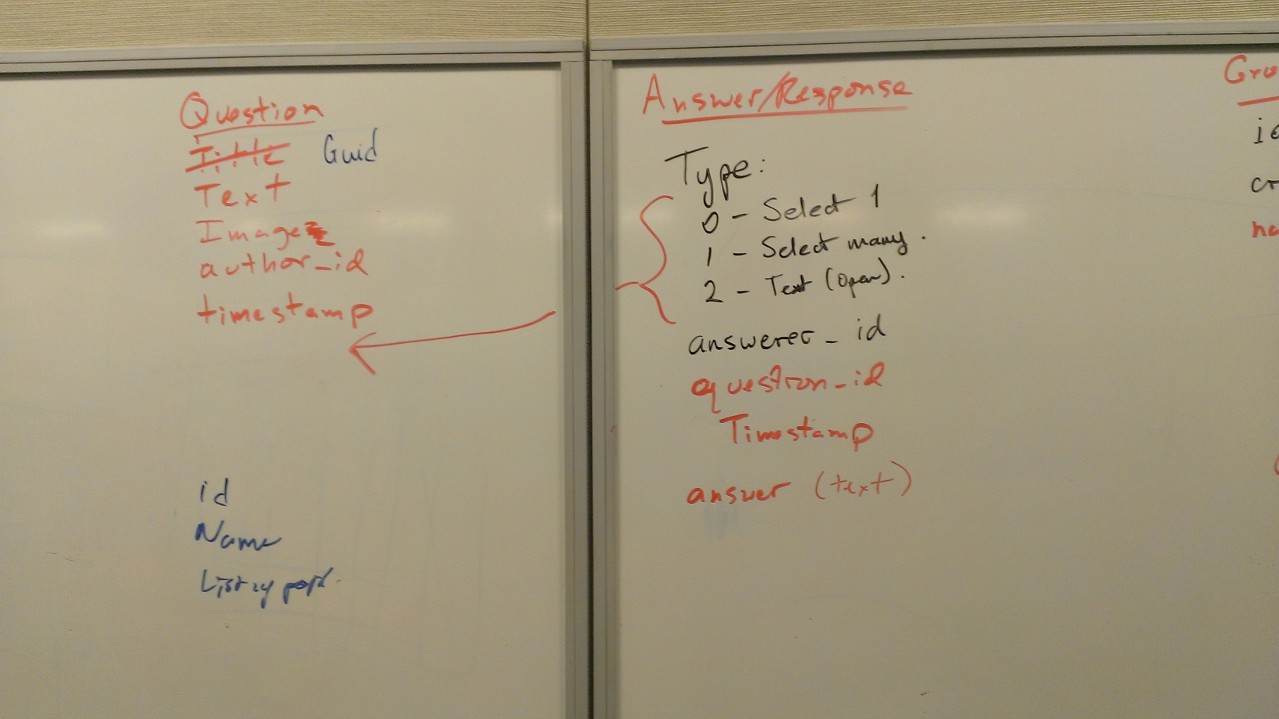 Question
Title Guid
Text
Image
author_id
timestamp
id
Name
List
Answer/Response
Type:
0 - Select 1
1 - Select many.
2 - Text (open).
answerer_id
question_id
Timestamp
answer (text)